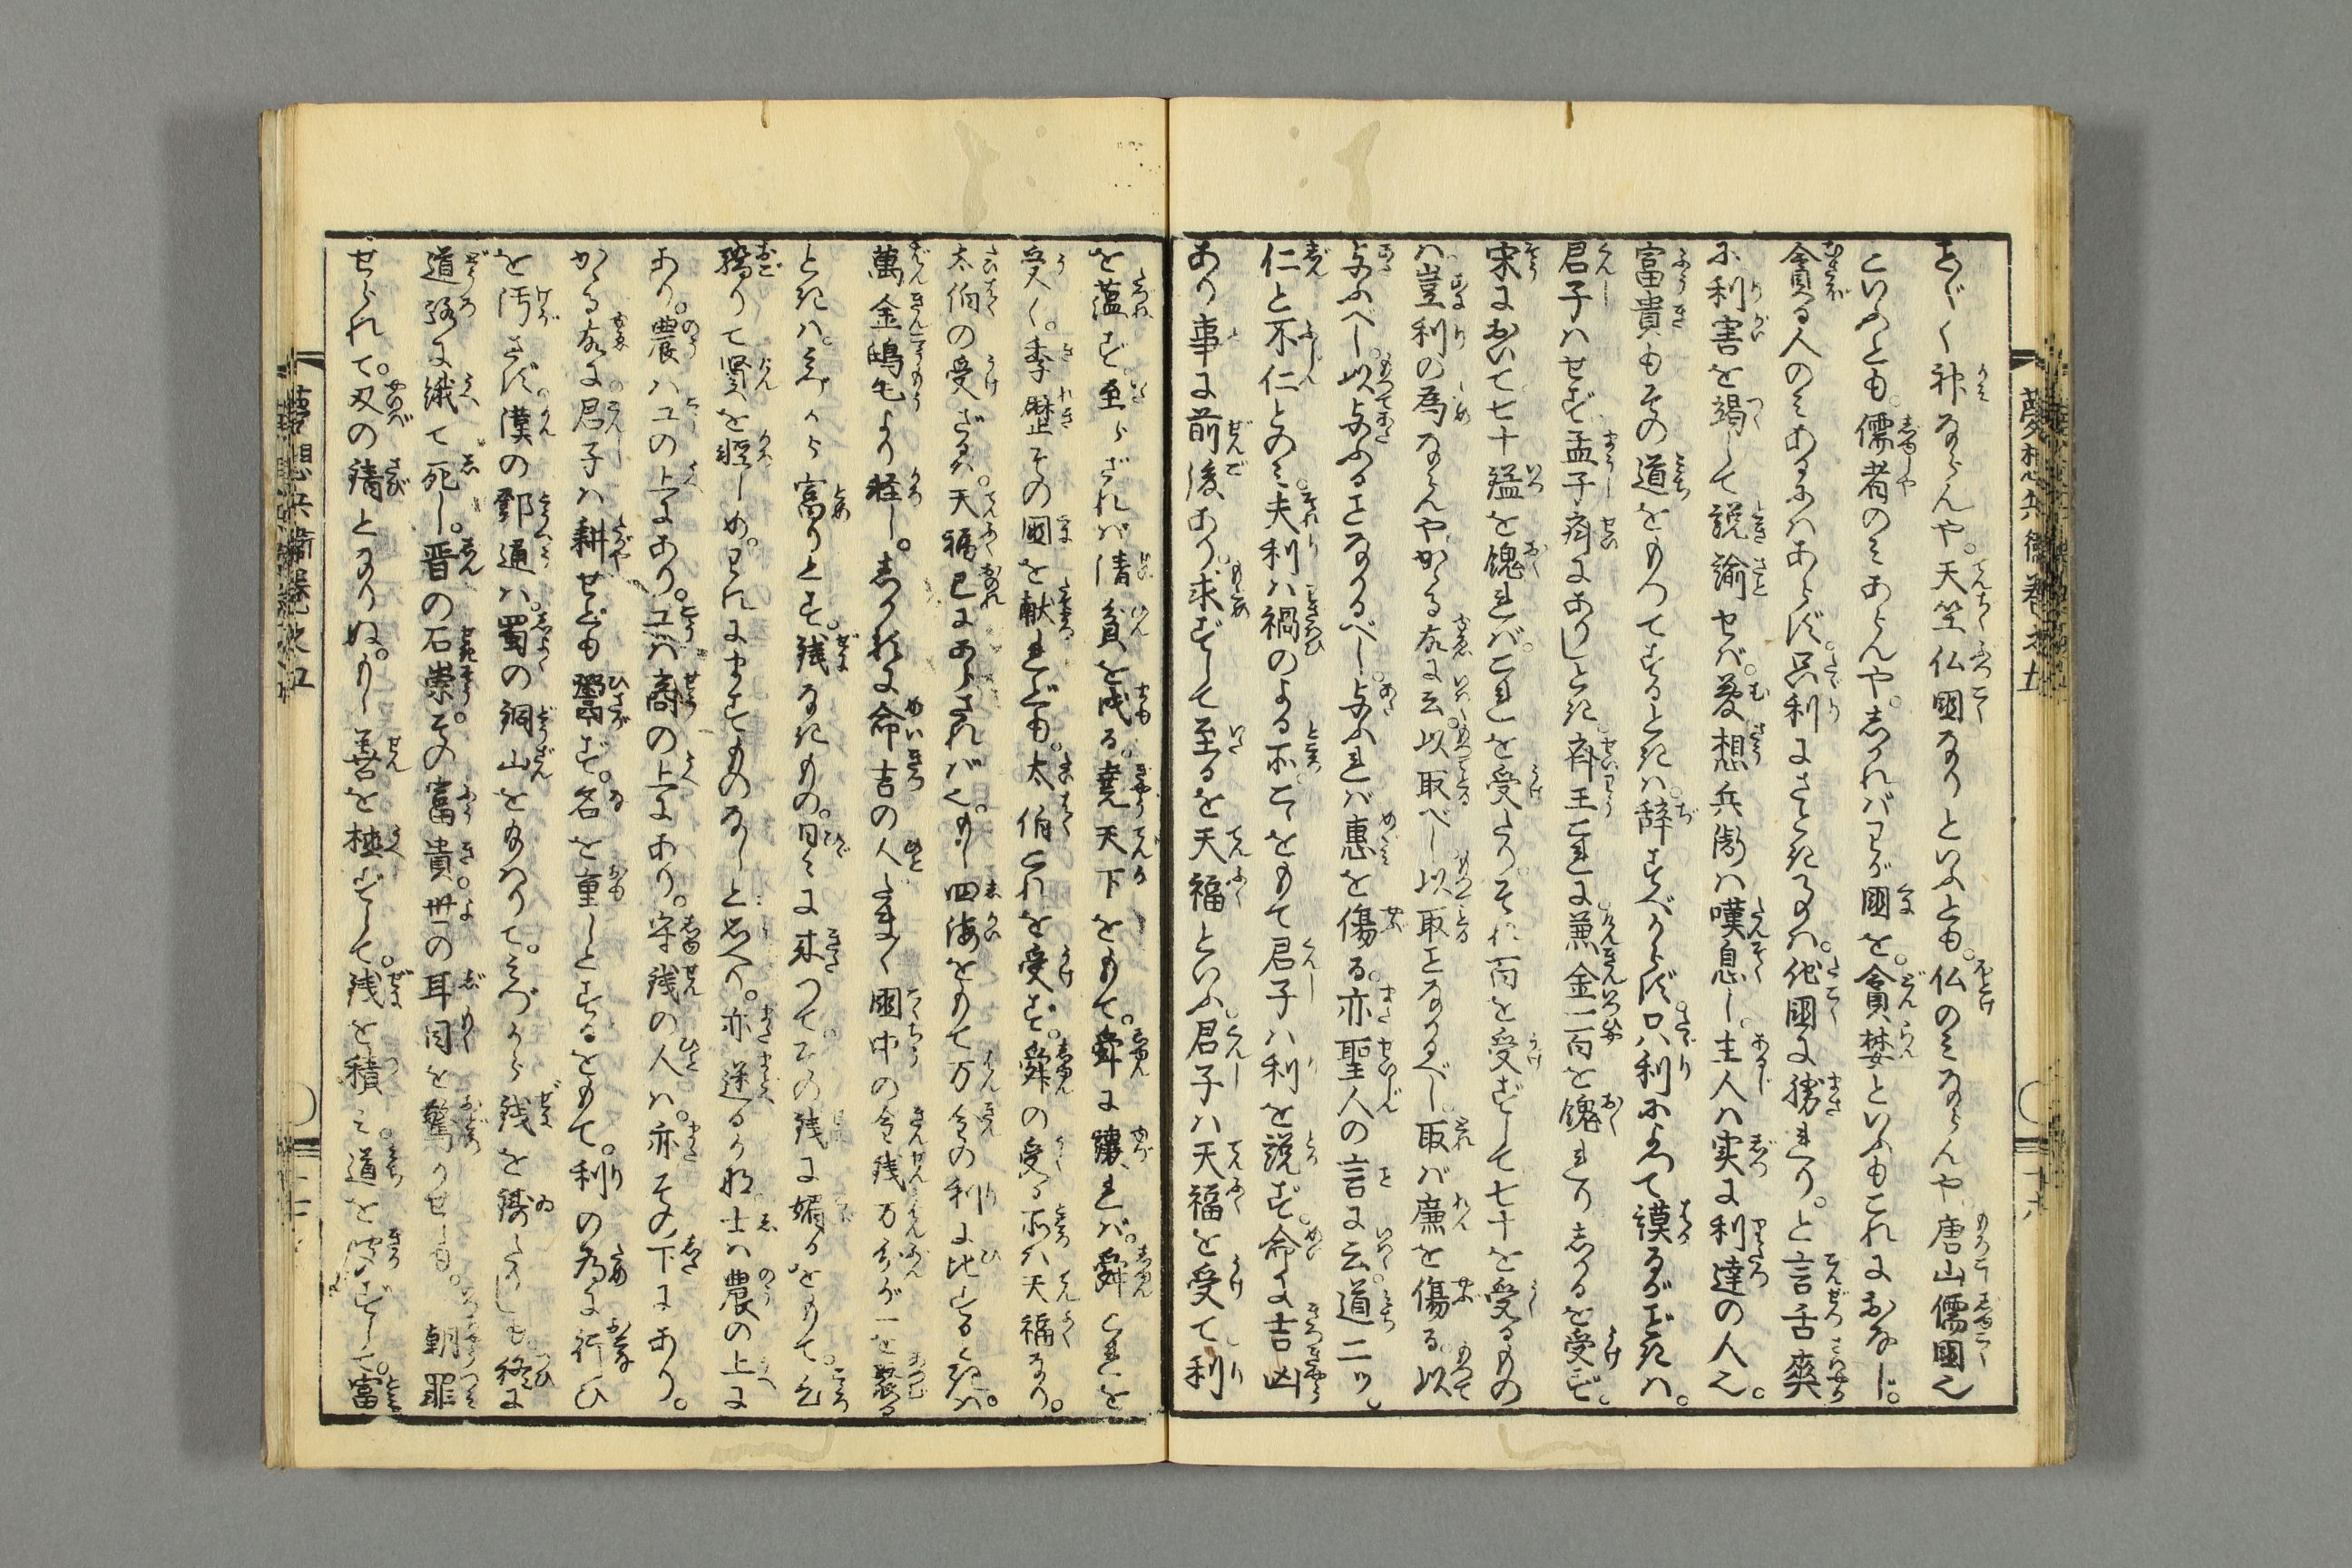 神ならんや。天竺仏國なりといふとも。仏のみならんや。唐山儒國也
といふとも。儒者のみあらんや。しかればわが國を。貪婪といふもこれにおなじ。
貪る人のみあるにはあらず。只利にさときものは。他國に勝れり。と言舌爽
に利害を竭して説諭せば。夢想兵衛は嘆息し。主人は実に利達の人也。
富貴もその道をもつてするときは。辞すべからず。只利によつて謀るがごときは。
君子はせず孟子斉にありしとき。斉王これに兼金一百を餽れりしかるを受ず。
宋において七十鎰を餽れば。これを受たり。それ百を受ずして七十を受るもの
は豈利の為ならんやかかる故に云。以取べし以取ことなかるべし。取ば廉を傷る。以
与ふべし。以与ふることなかるべし。与ふれば惠を傷る。亦聖人の言に云。道二ツ。
仁と不仁とのみ。夫利は禍のよる所こゝをもて君子は利を説ず。命に吉凶
あり事に前後あり。求ずして至るを天福といふ。君子は天福を受て利
を薀ず。至らざれば清貧を戍る。堯天下をもて。舜に譲れば。舜これを
受く。季歴その國を献れども。太伯これを受ず。舜の受る所は天福なり。
太伯の受ざるは。天福已にあらざればなり。もし四海をもて万金の利に比するときは。
萬金鴻毛より軽し。しかるに命吉の人たま〳〵國中の金銭万分が一を聚る
ときは。みづから富りとす。銭なきもの。日々に来つて。その銭に媚るをもて。心
驕りて賢を軽しめ。われにますものなしと思へり。亦迷るかな。士は農の上に
あり。農は工の上にあり。工は商の上にあり。守銭の人は。亦その下にあり。
かゝる故に君子は耕せども鬻ず。名を重しとするをもて。利の為に行ひ
を汚さず。漢の鄧通は。蜀の銅山をたまはりて。みづから銭を鋳たりしも。終に
道路に餓て死し。晋の石崇その富貴。世の耳目を驚かせしも。一朝罪
せられて。刃の錆となりぬ。もし善を極ずして。銭を積み。道を ずして。富
夢想兵衛巻之五